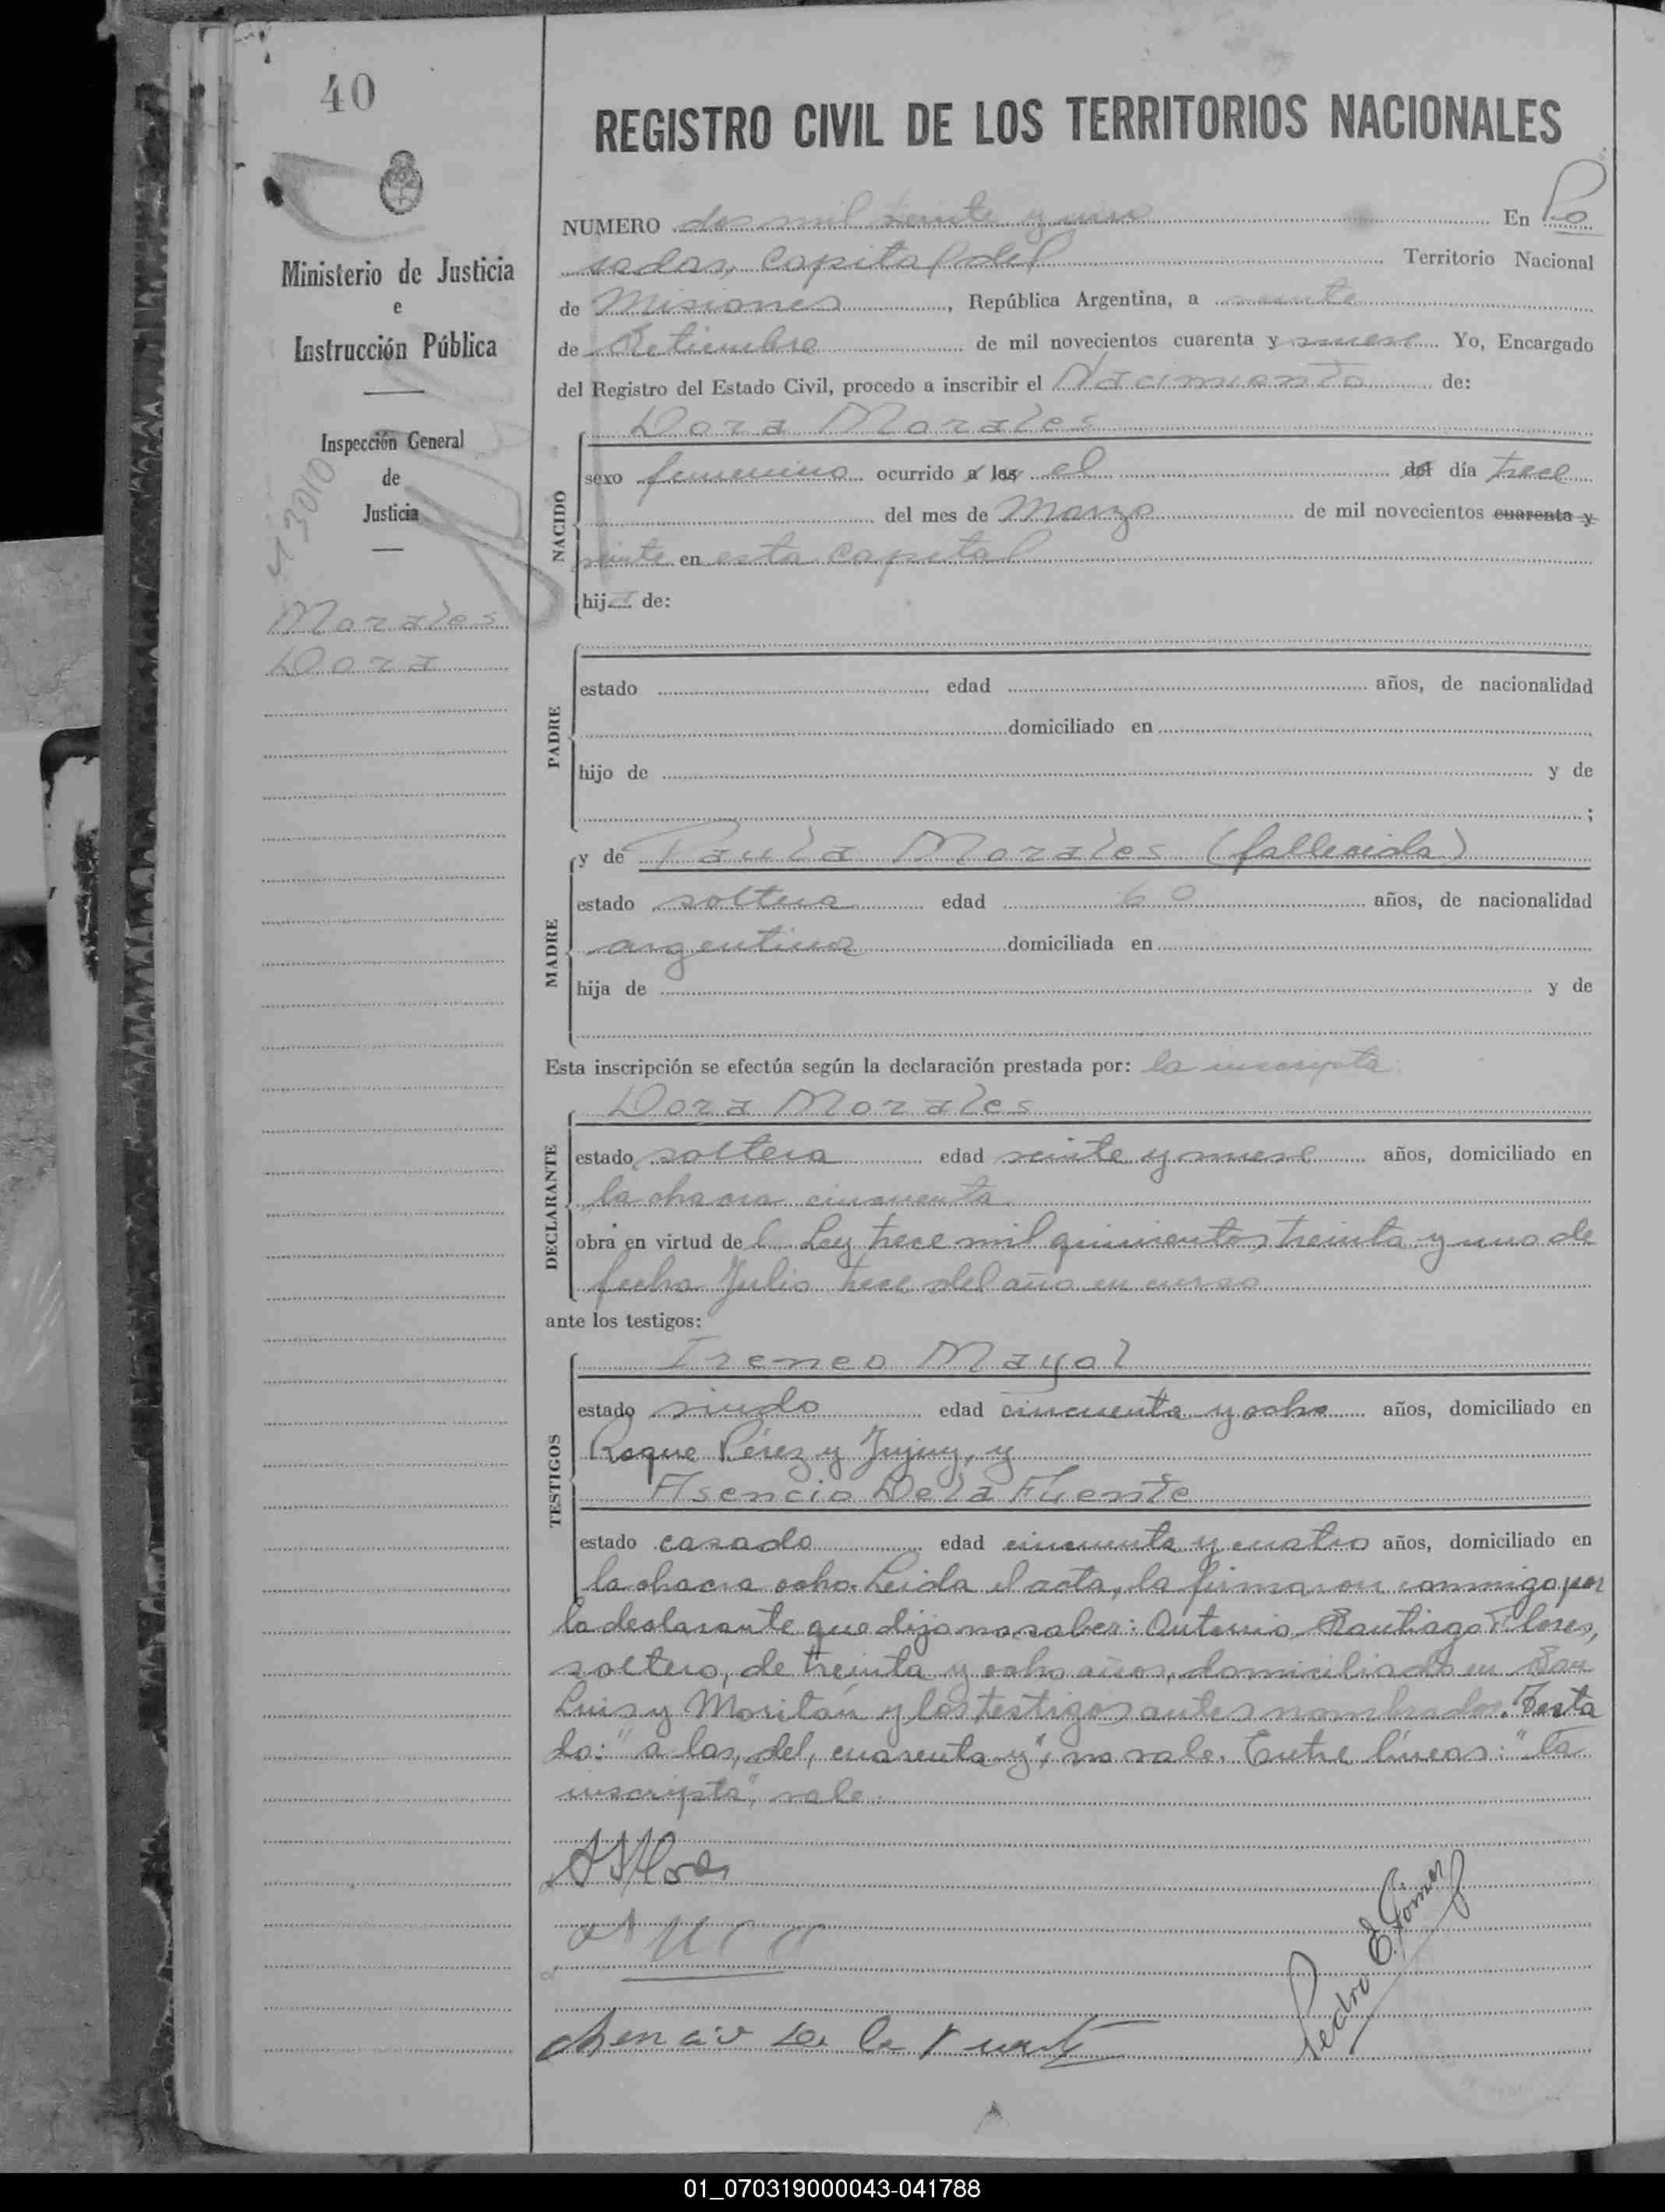 40
REGISTRO CIVIL DE LOS TERRITORIOS NACIONALES
NUMERO dos mil veinte y uno En Po
sadas, capital del Territorio Nacional
de Misiones, República Argentina, a veinte
de Setiembre de mil novecientos cuarenta y nueve Yo, Encargado
del Registro del Estado Civil, procedo a inscribir el Nacimiento de:
Ministerio de Justicia
e
Instrucción Pública
Inspección General
de
Justicia
13010
Morales
Dora
NACIDO
Dora Morales
sexo femenino ocurrido a las el del día trece
del mes de Marzo de mil novecientos cuarenta y
veinte en esta capital
hija de:
PADRE
estado edad años, de nacionalidad
domiciliado en
hijo de y de
;
MADRE
y de Paula Morales (fallecida)
estado soltera edad 60 años, de nacionalidad
argentina domiciliada en
hija de y de
Esta inscripción se efectúa según la declaración prestada por: la inscripta
DECLARANTE
Dora Morales
estado soltera edad veinte y nueve años, domiciliado en
la chacra cincuenta
obra en virtud de l Ley trece mil quinientos treinta y uno de
fecha Julio trece del año en curso
ante los testigos:
TESTIGOS
Ireneo Mayol
estado viudo edad cincuenta y ocho años, domiciliado en
Roque Pérez y Jujuy, y
Asencio De la Fuente
estado casado edad cincuenta y cuatro años, domiciliado en
la chacra ocho. Leida el acta, la firmaron conmigo por
la declarante que dijo no saber: Antonio Santiago Flores,
soltero, de treinta y ocho años, domiciliado en San
Luis y Moritán y los testigos antes nombrados. Testa
do: "a las, del, cuarenta y", no vale. Entre líneas: "la
inscripta", vale.
A S Flores
Asencio De la Fuente
Pedro E. Gómez
01_070319000043-041788